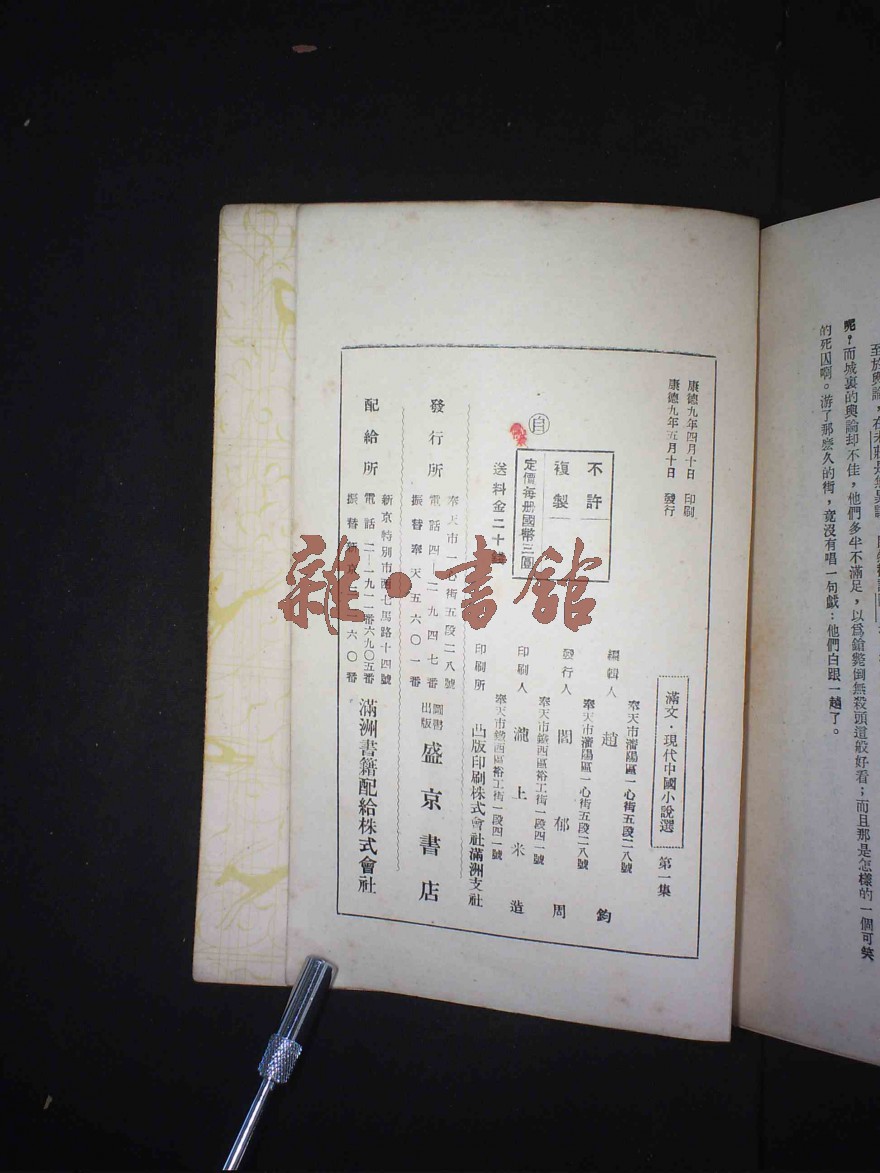 呢？而城裏的輿論却不佳，他們多半不滿足，以爲鎗斃倒無殺頭這般好看；而且那是怎樣的一個可笑
的死囚啊。游了那麽久的街，竟沒有唱一句戲：他們白跟一趟了。
康德九年四月十日 印刷
康德九年五月十日 發行
滿文·現代中國小說選 第一集
不許
複製
定價每册國幣三圓
送料金二十錢
自
奉天市瀋陽區一心街五段二八號
編輯人 趙 鈞
奉天市瀋陽區一心街五段二八號
發行人 閻郁周
奉天市鐵西區裕工街一段四一號
印刷人 瀧上米造
奉天市鐵西區裕工街一段四一號
印刷所 凸版印刷株式會社滿洲支社
發行所
奉天市一心街五段二八號
電話四—二一九四七番
振替奉天五六〇一番
圖書出版 盛京書店
配給所
新京特別市西七馬路十四號
滿洲書籍配給株式會社
雜·書館